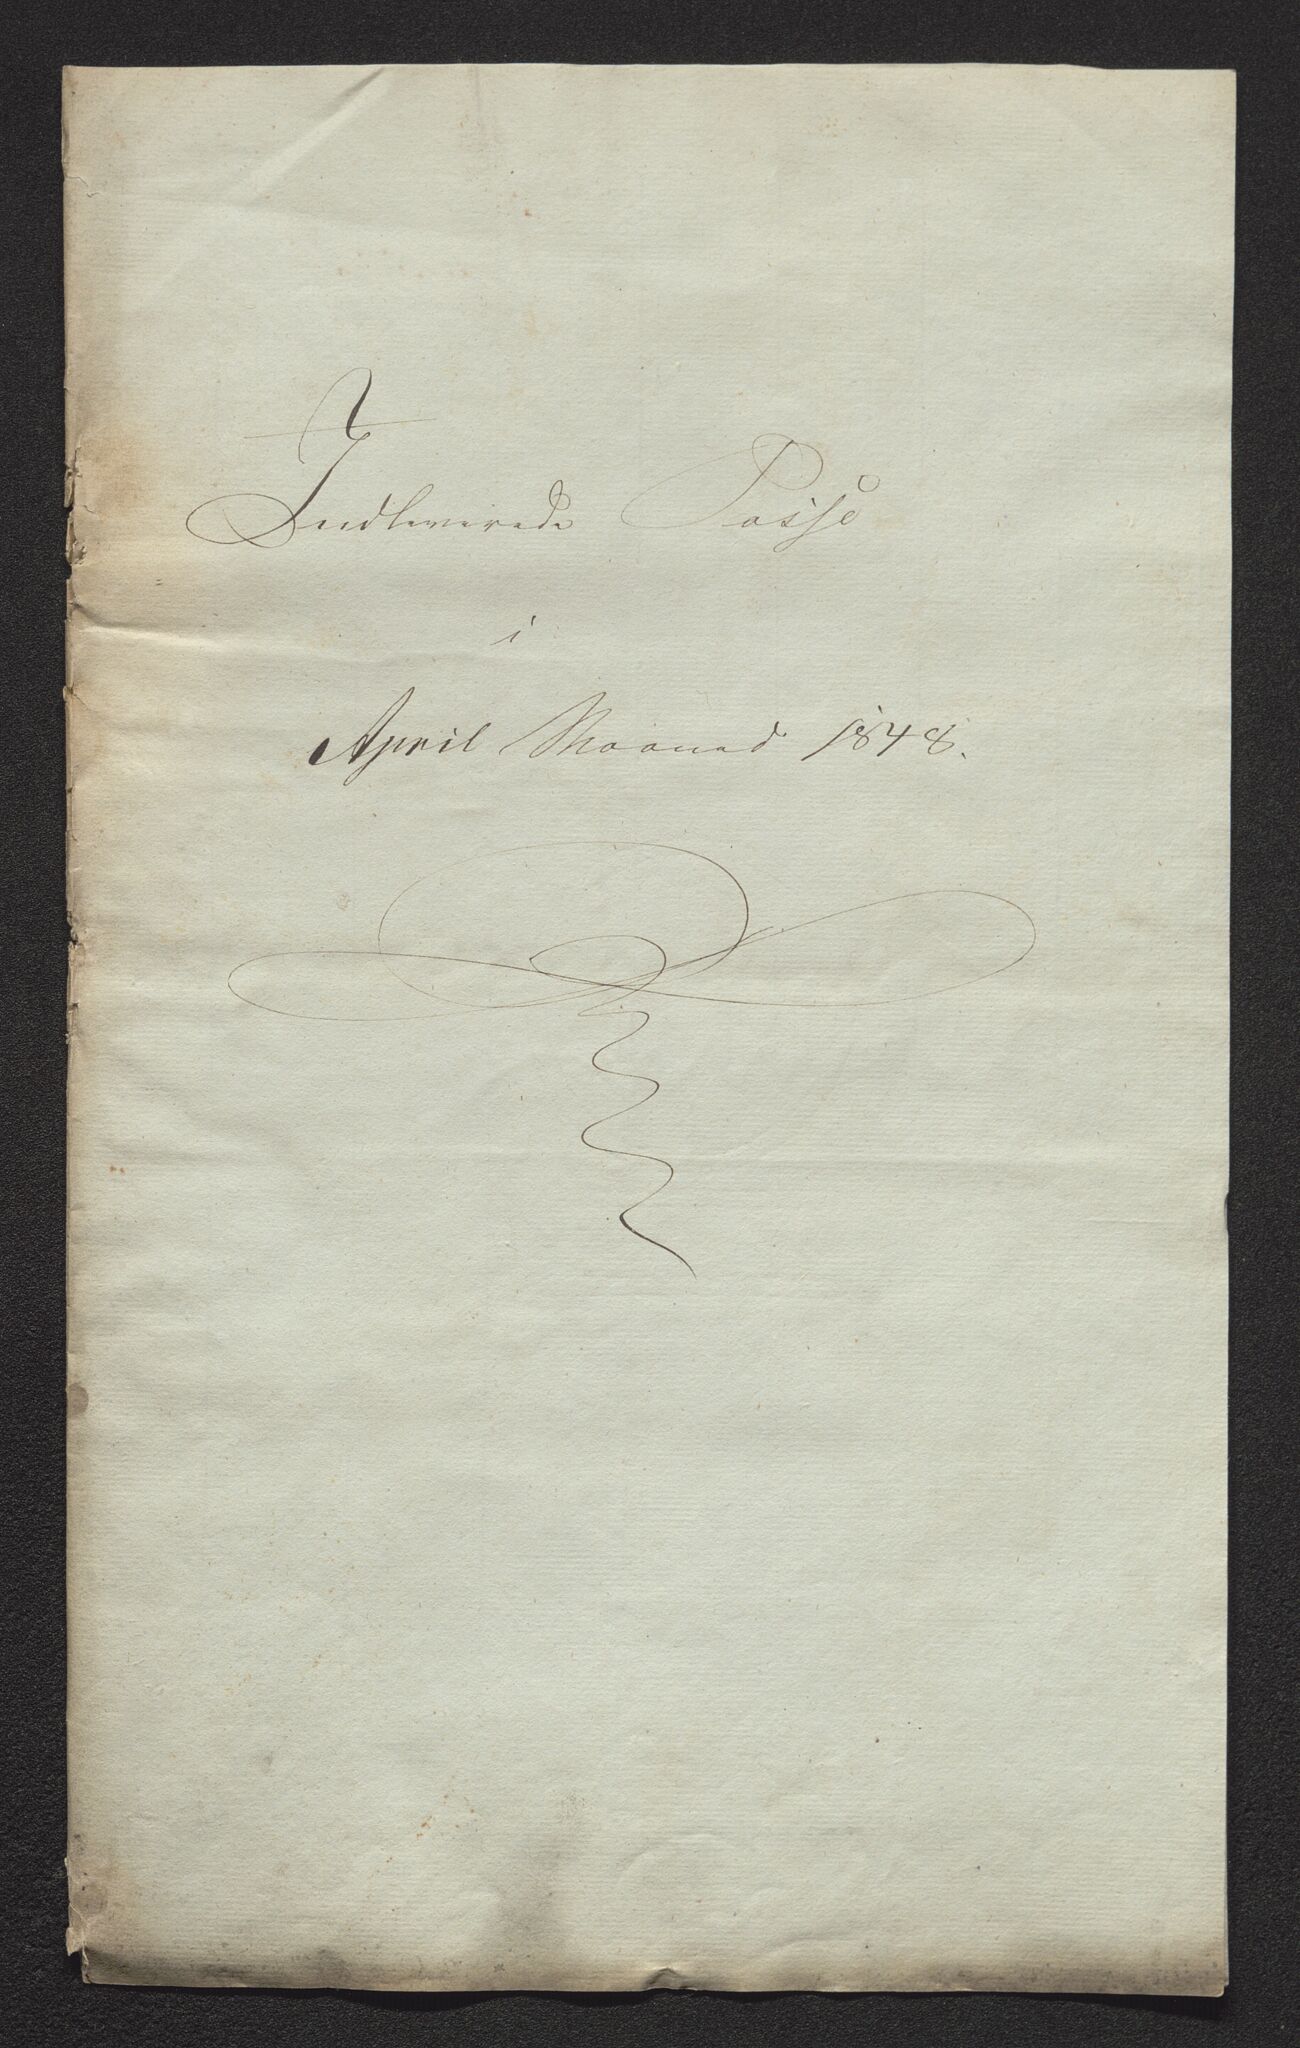 Indleverede Passe
i
April Maaned 1848.